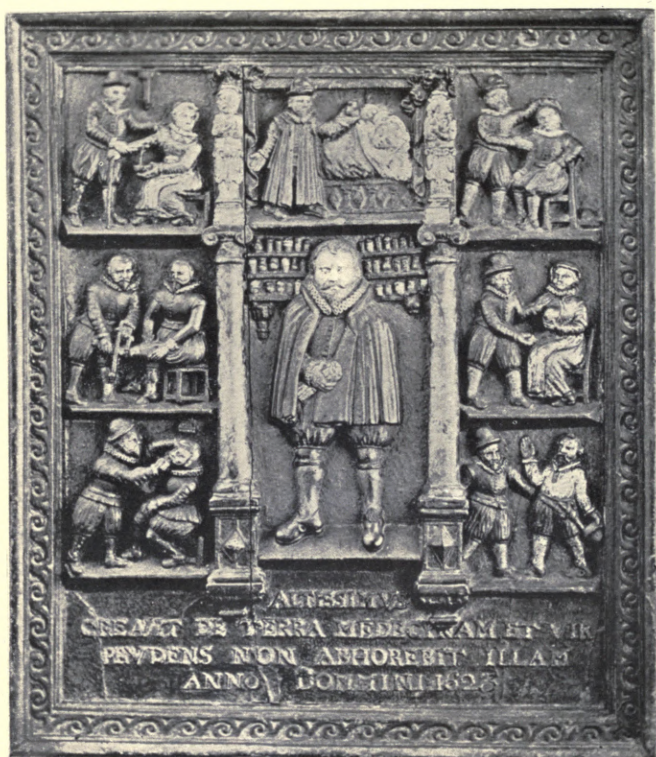 CREAVIT DE TERRA MEDECINAM ET VIR
PRVDENS NON ABHOREBIT ILLAM
ANNO DOMMINI 1623